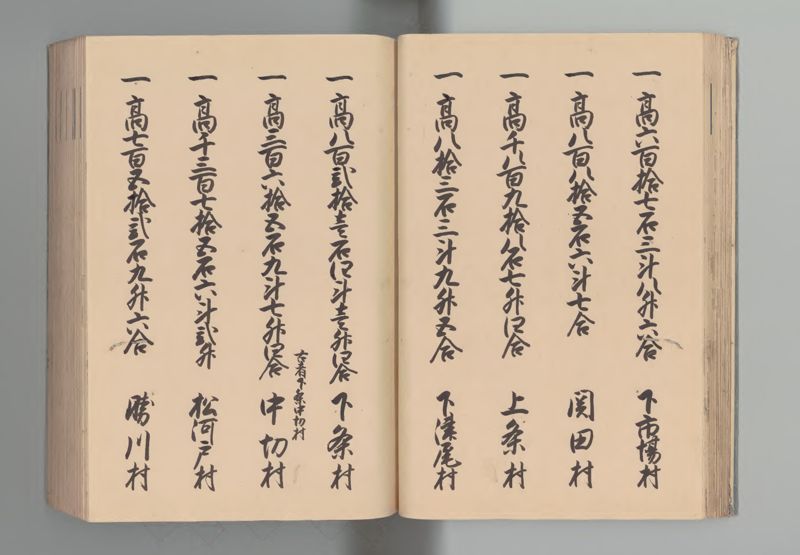 一高六百拾七石三斗八升六合 下市場村
一高八百八拾五石六斗七合 関田村
一高千八百九拾八石七升四合 上条村
一高八拾三石三斗九升五合 下津尾村
一高八百弐拾壱石四斗壱升四合 下条村
古者下条中切村
一高三百六拾五石九斗七升四合 中切村
一高千三百七拾五石六斗弐升 松河戸村
一高七百五拾弐石九升六合 勝川村